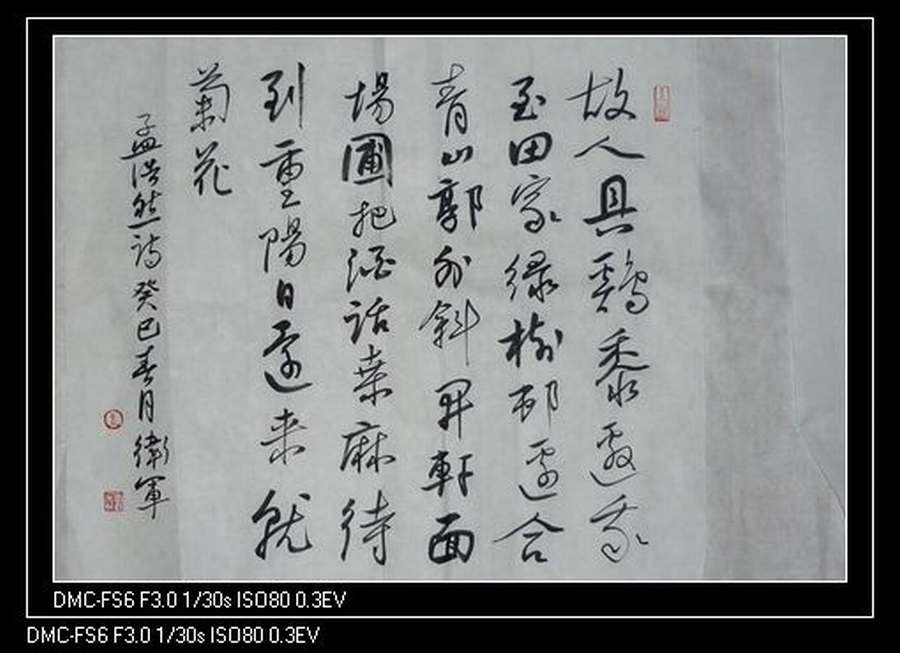 故人具鷄黍邀我
至田家绿樹邨邊合
青山郭外斜開軒面
場圃把酒話桑麻待
到重陽日還来就
菊花
孟浩然詩癸巳春月衛軍
DMC-FS6 F3.0 1/30s ISO80 0.3EV
DMC-FS6 F3.0 1/30s ISO80 0.3EV